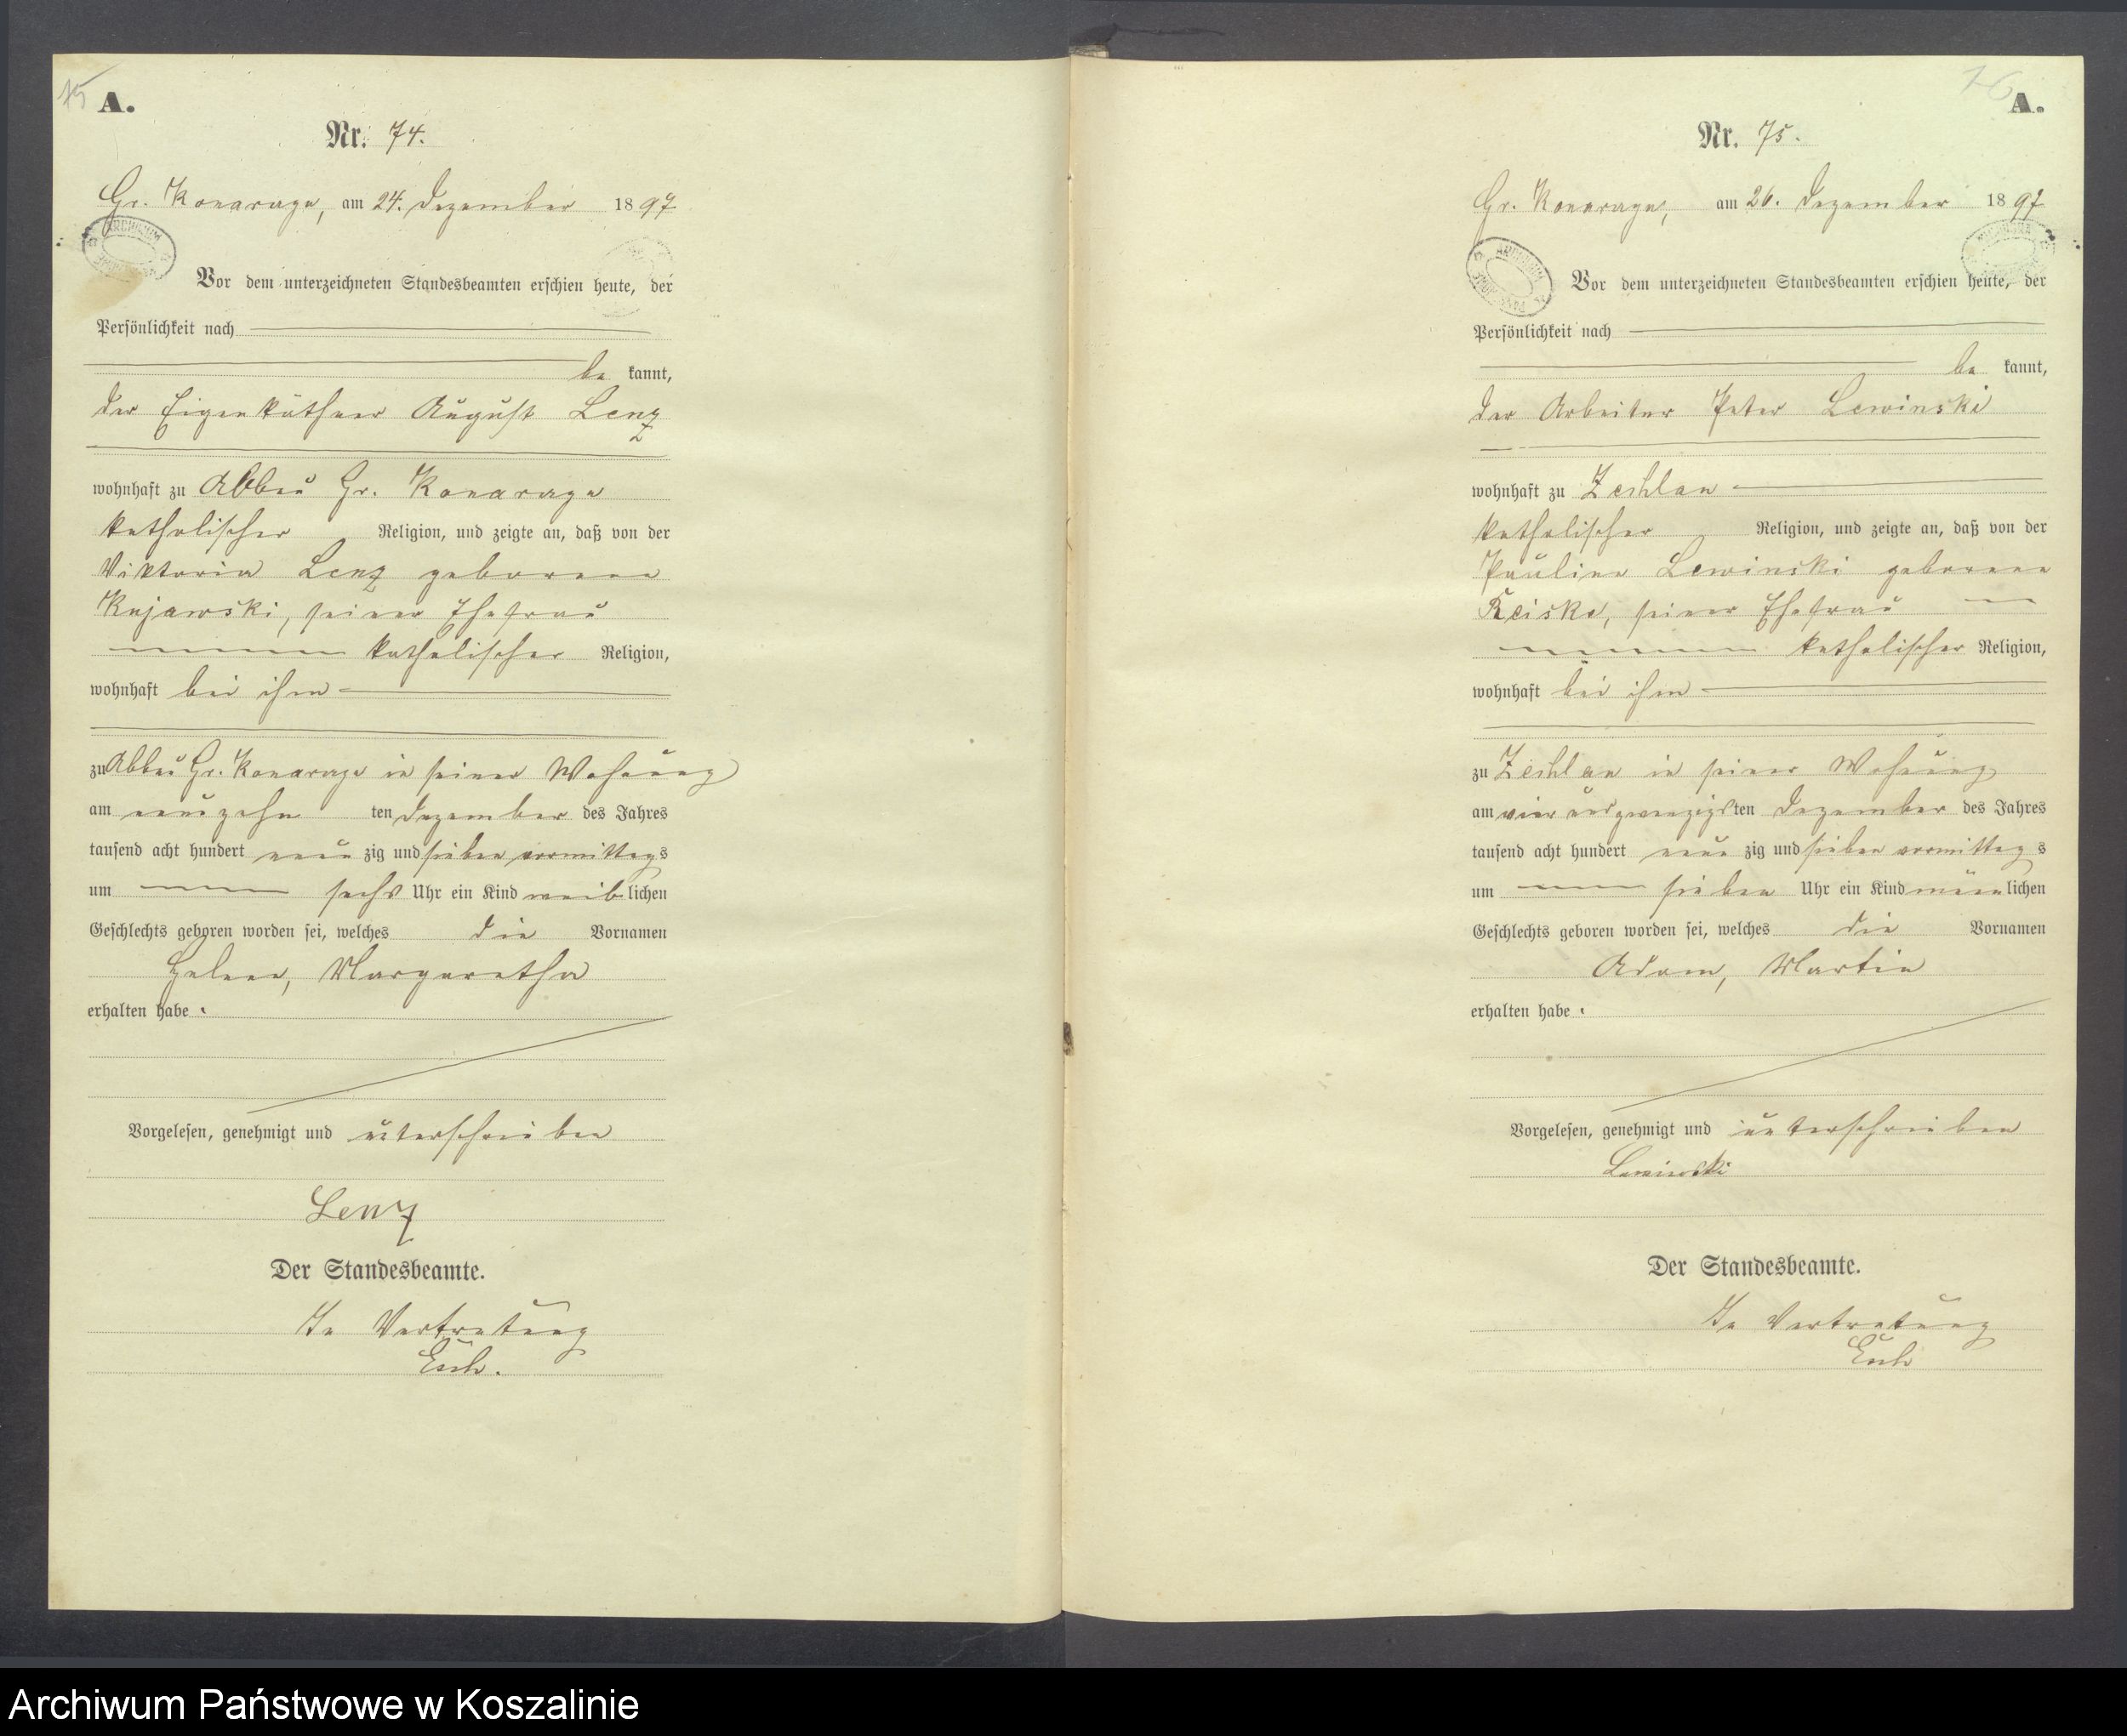 75
A.
Nr. 74.
Gr. Konarage, am 24. Dezember 1897
Vor dem unterzeichneten Standesbeamten erschien heute, der
Persönlichkeit nach
be kannt,
der Eigenkäthner August Lenz
wohnhaft zu Abbau Gr. Konarage
katholischer Religion, und zeigte an, daß von der
Viktoria Lenz geborene
Kujawski, seiner Ehefrau
katholischer Religion,
wohnhaft bei ihm
zu Abbau Gr. Konarage in seiner Wohnung
am neunzehn ten Dezember des Jahres
tausend acht hundert neun zig und sieben vormittags
um sechs Uhr ein Kind weiblichen
Geschlechts geboren worden sei, welches die Vornamen
Helene, Margaretha
erhalten habe.
Vorgelesen, genehmigt und unterschrieben
Lenz
Der Standesbeamte.
In Vertretung
76
A.
Nr. 75.
Gr. Konarage, am 26. Dezember 1897
Vor dem unterzeichneten Standesbeamten erschien heute, der
Persönlichkeit nach
be kannt,
der Arbeiter Peter Lewinski
wohnhaft zu Zechlau
katholischer Religion, und zeigte an, daß von der
Pauline Lewinski geborene
Reiske, seiner Ehefrau
katholischer Religion,
wohnhaft bei ihm
zu Zechlau in seiner Wohnung
am vierundzwanzigsten Dezember des Jahres
tausend acht hundert neun zig und sieben vormittags
um sieben Uhr ein Kind männlichen
Geschlechts geboren worden sei, welches die Vornamen
Adam, Martin
erhalten habe.
Vorgelesen, genehmigt und unterschrieben
Lewinski
Der Standesbeamte.
In Vertretung
Archiwum Państwowe w Koszalinie